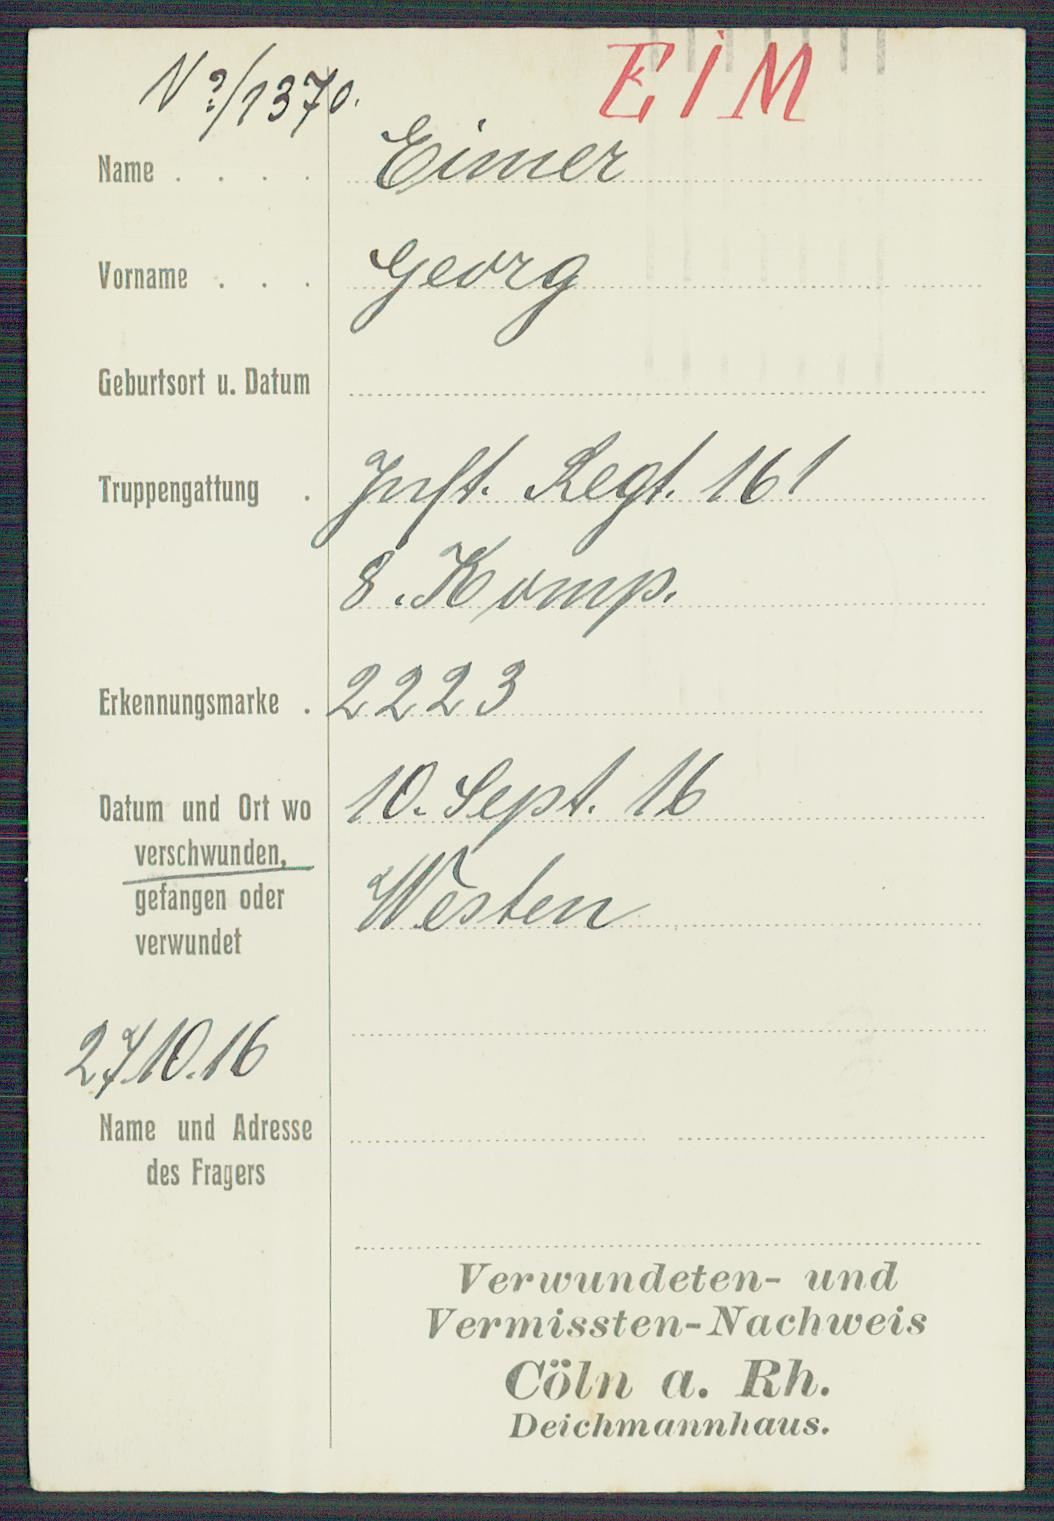 EIM
N?/1370.
Name . . . . Eimer
Vorname . . . Georg
Geburtsort u. Datum
Truppengattung . Inft. Regt. 161
8. Komp.
Erkennungsmarke . 2223
Datum und Ort wo 10. Sept. 16
verschwunden,
gefangen oder Westen
verwundet
27.10.16
Name und Adresse
des Fragers
Verwundeten- und
Vermissten-Nachweis
Cöln a. Rh.
Deichmannhaus.